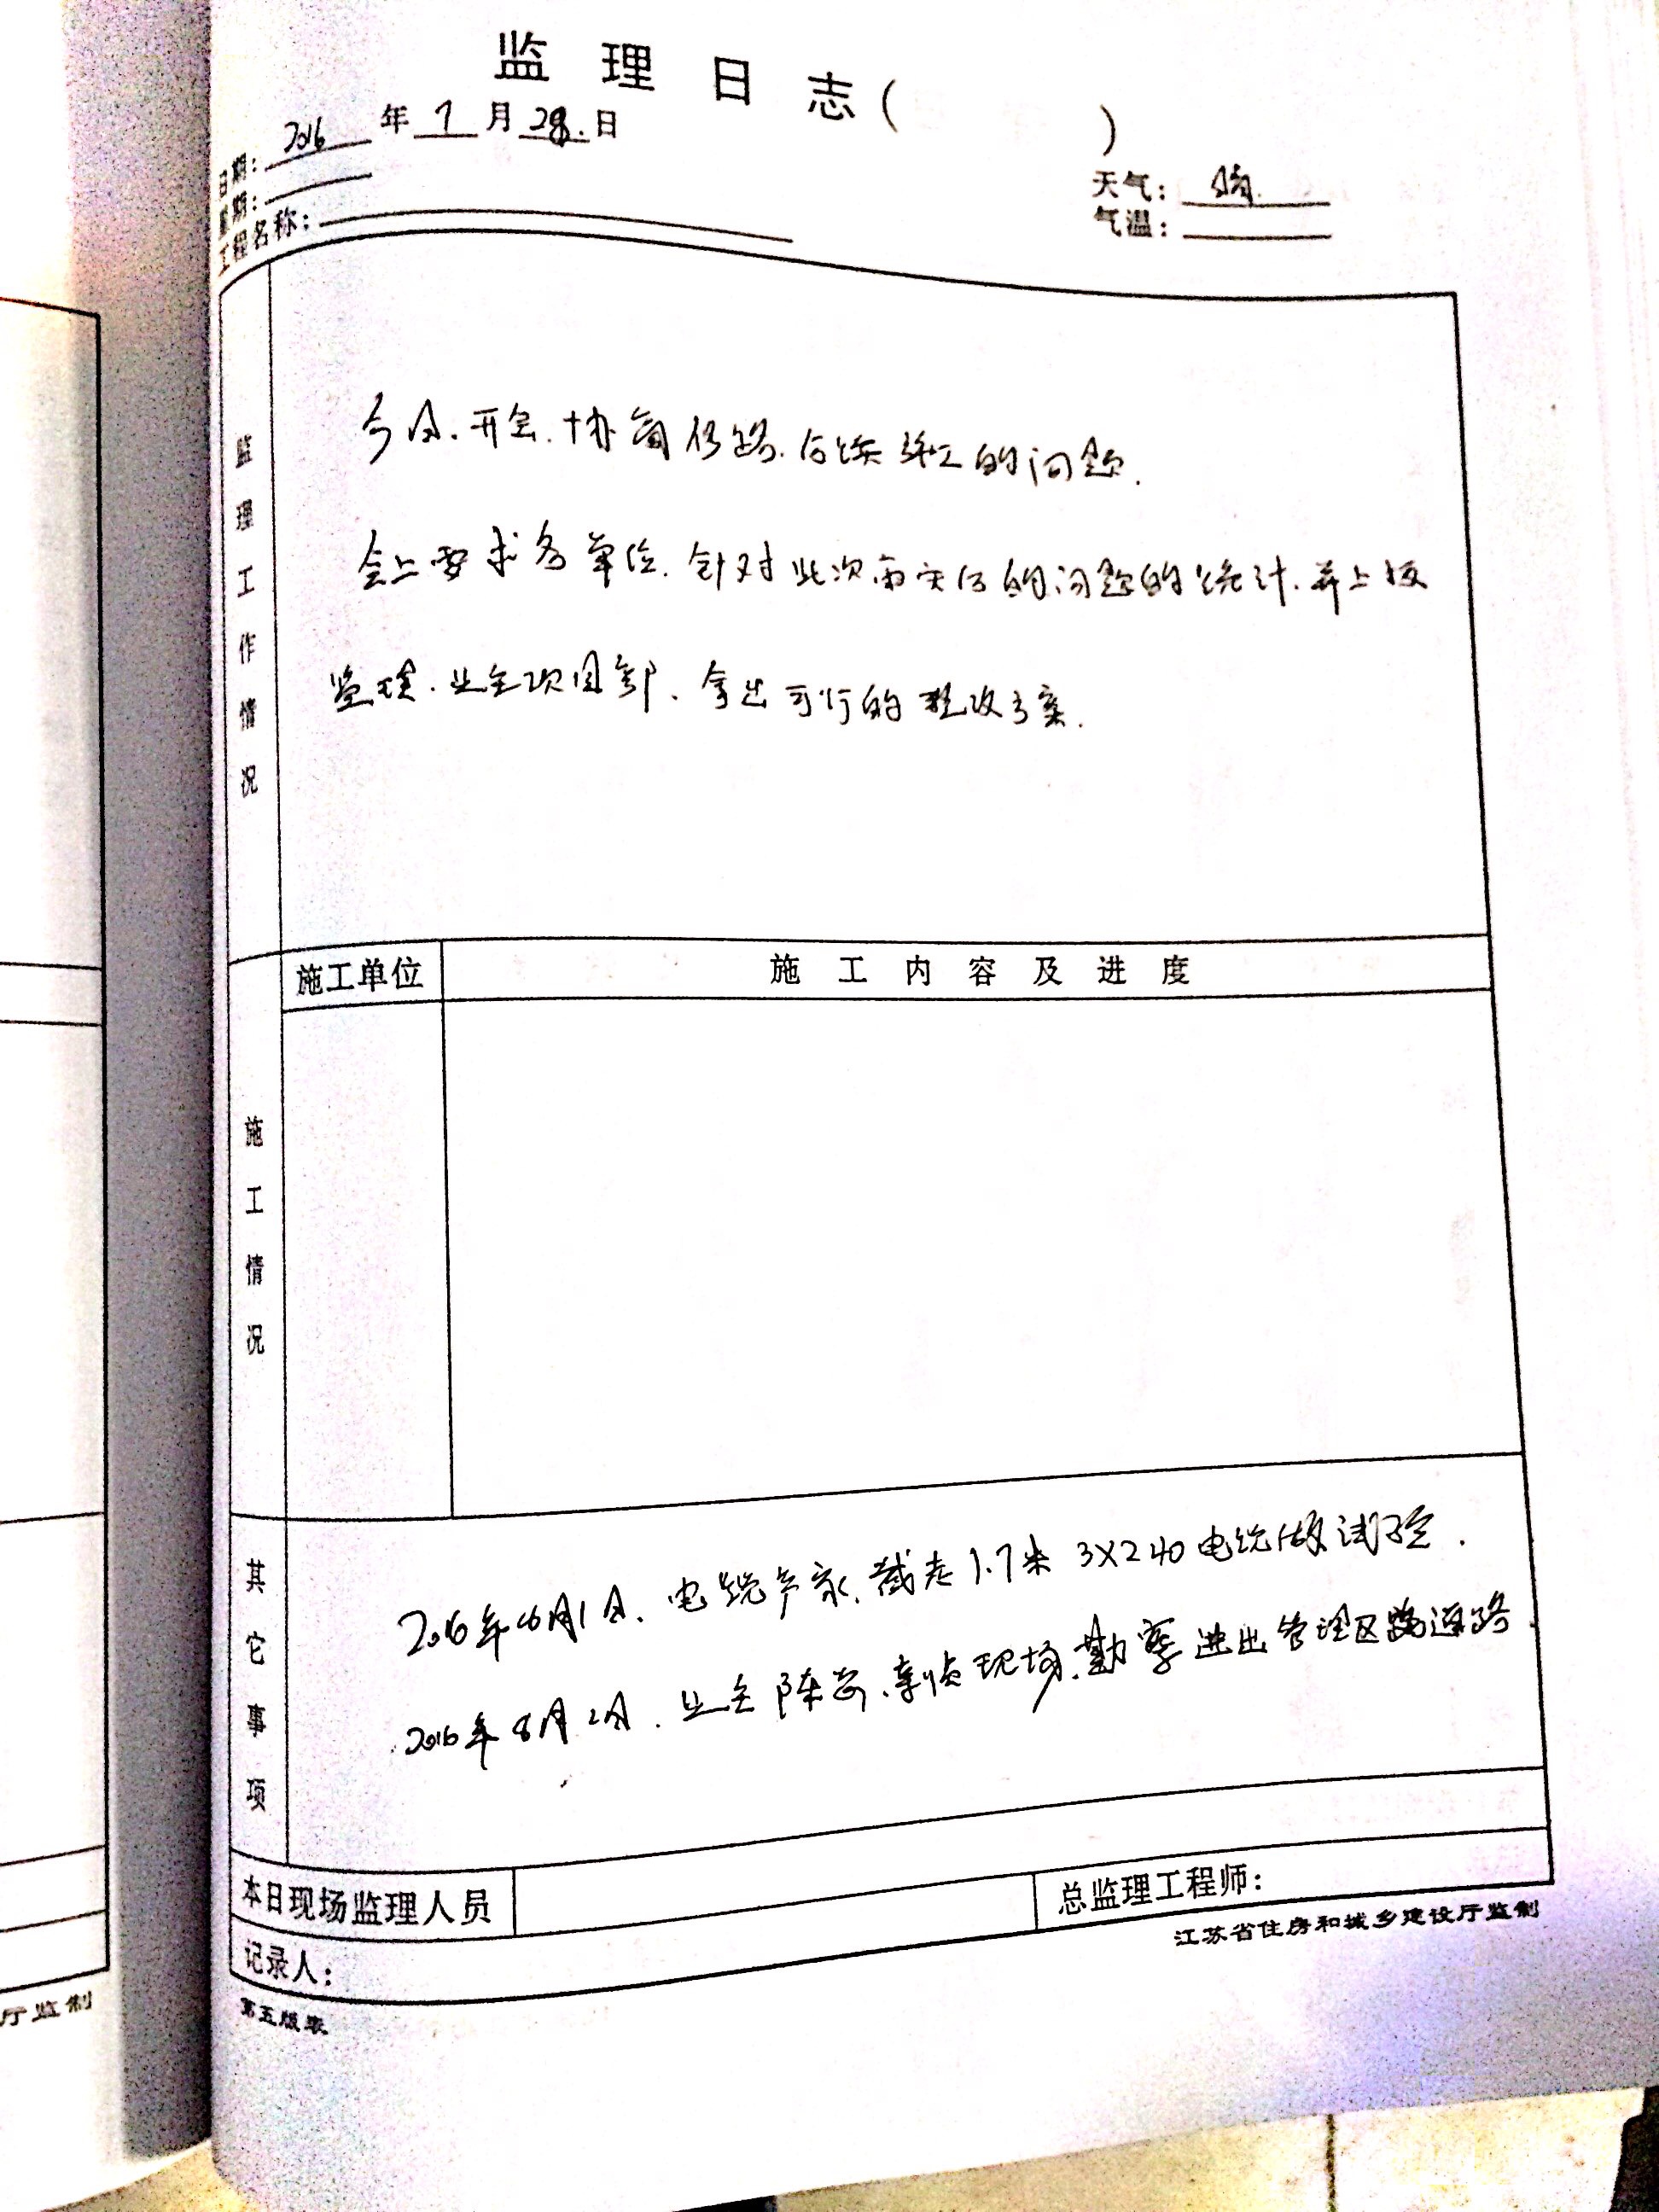 监理日志( )
日期: 2016 年 7 月 28 日
天气: 晴
星期:
气温:
工程名称:
监理工作情况
今日.开会.协商修路.后续施工的问题.
会上要求各单位.针对此次雨灾后的问题的统计.并上报
监理.业主项目部.拿出可行的整改方案.
施工单位 施工内容及进度
施工情况
其它事项
2016年 月1日.电缆产家.截走1.7米 3X240电缆做试验.
2016年8月2日.业主陈 现场.勘察进出管理区 道路.
本日现场监理人员
总监理工程师:
记录人:
第五版表
江苏省住房和城乡建设厅监制
厅监制